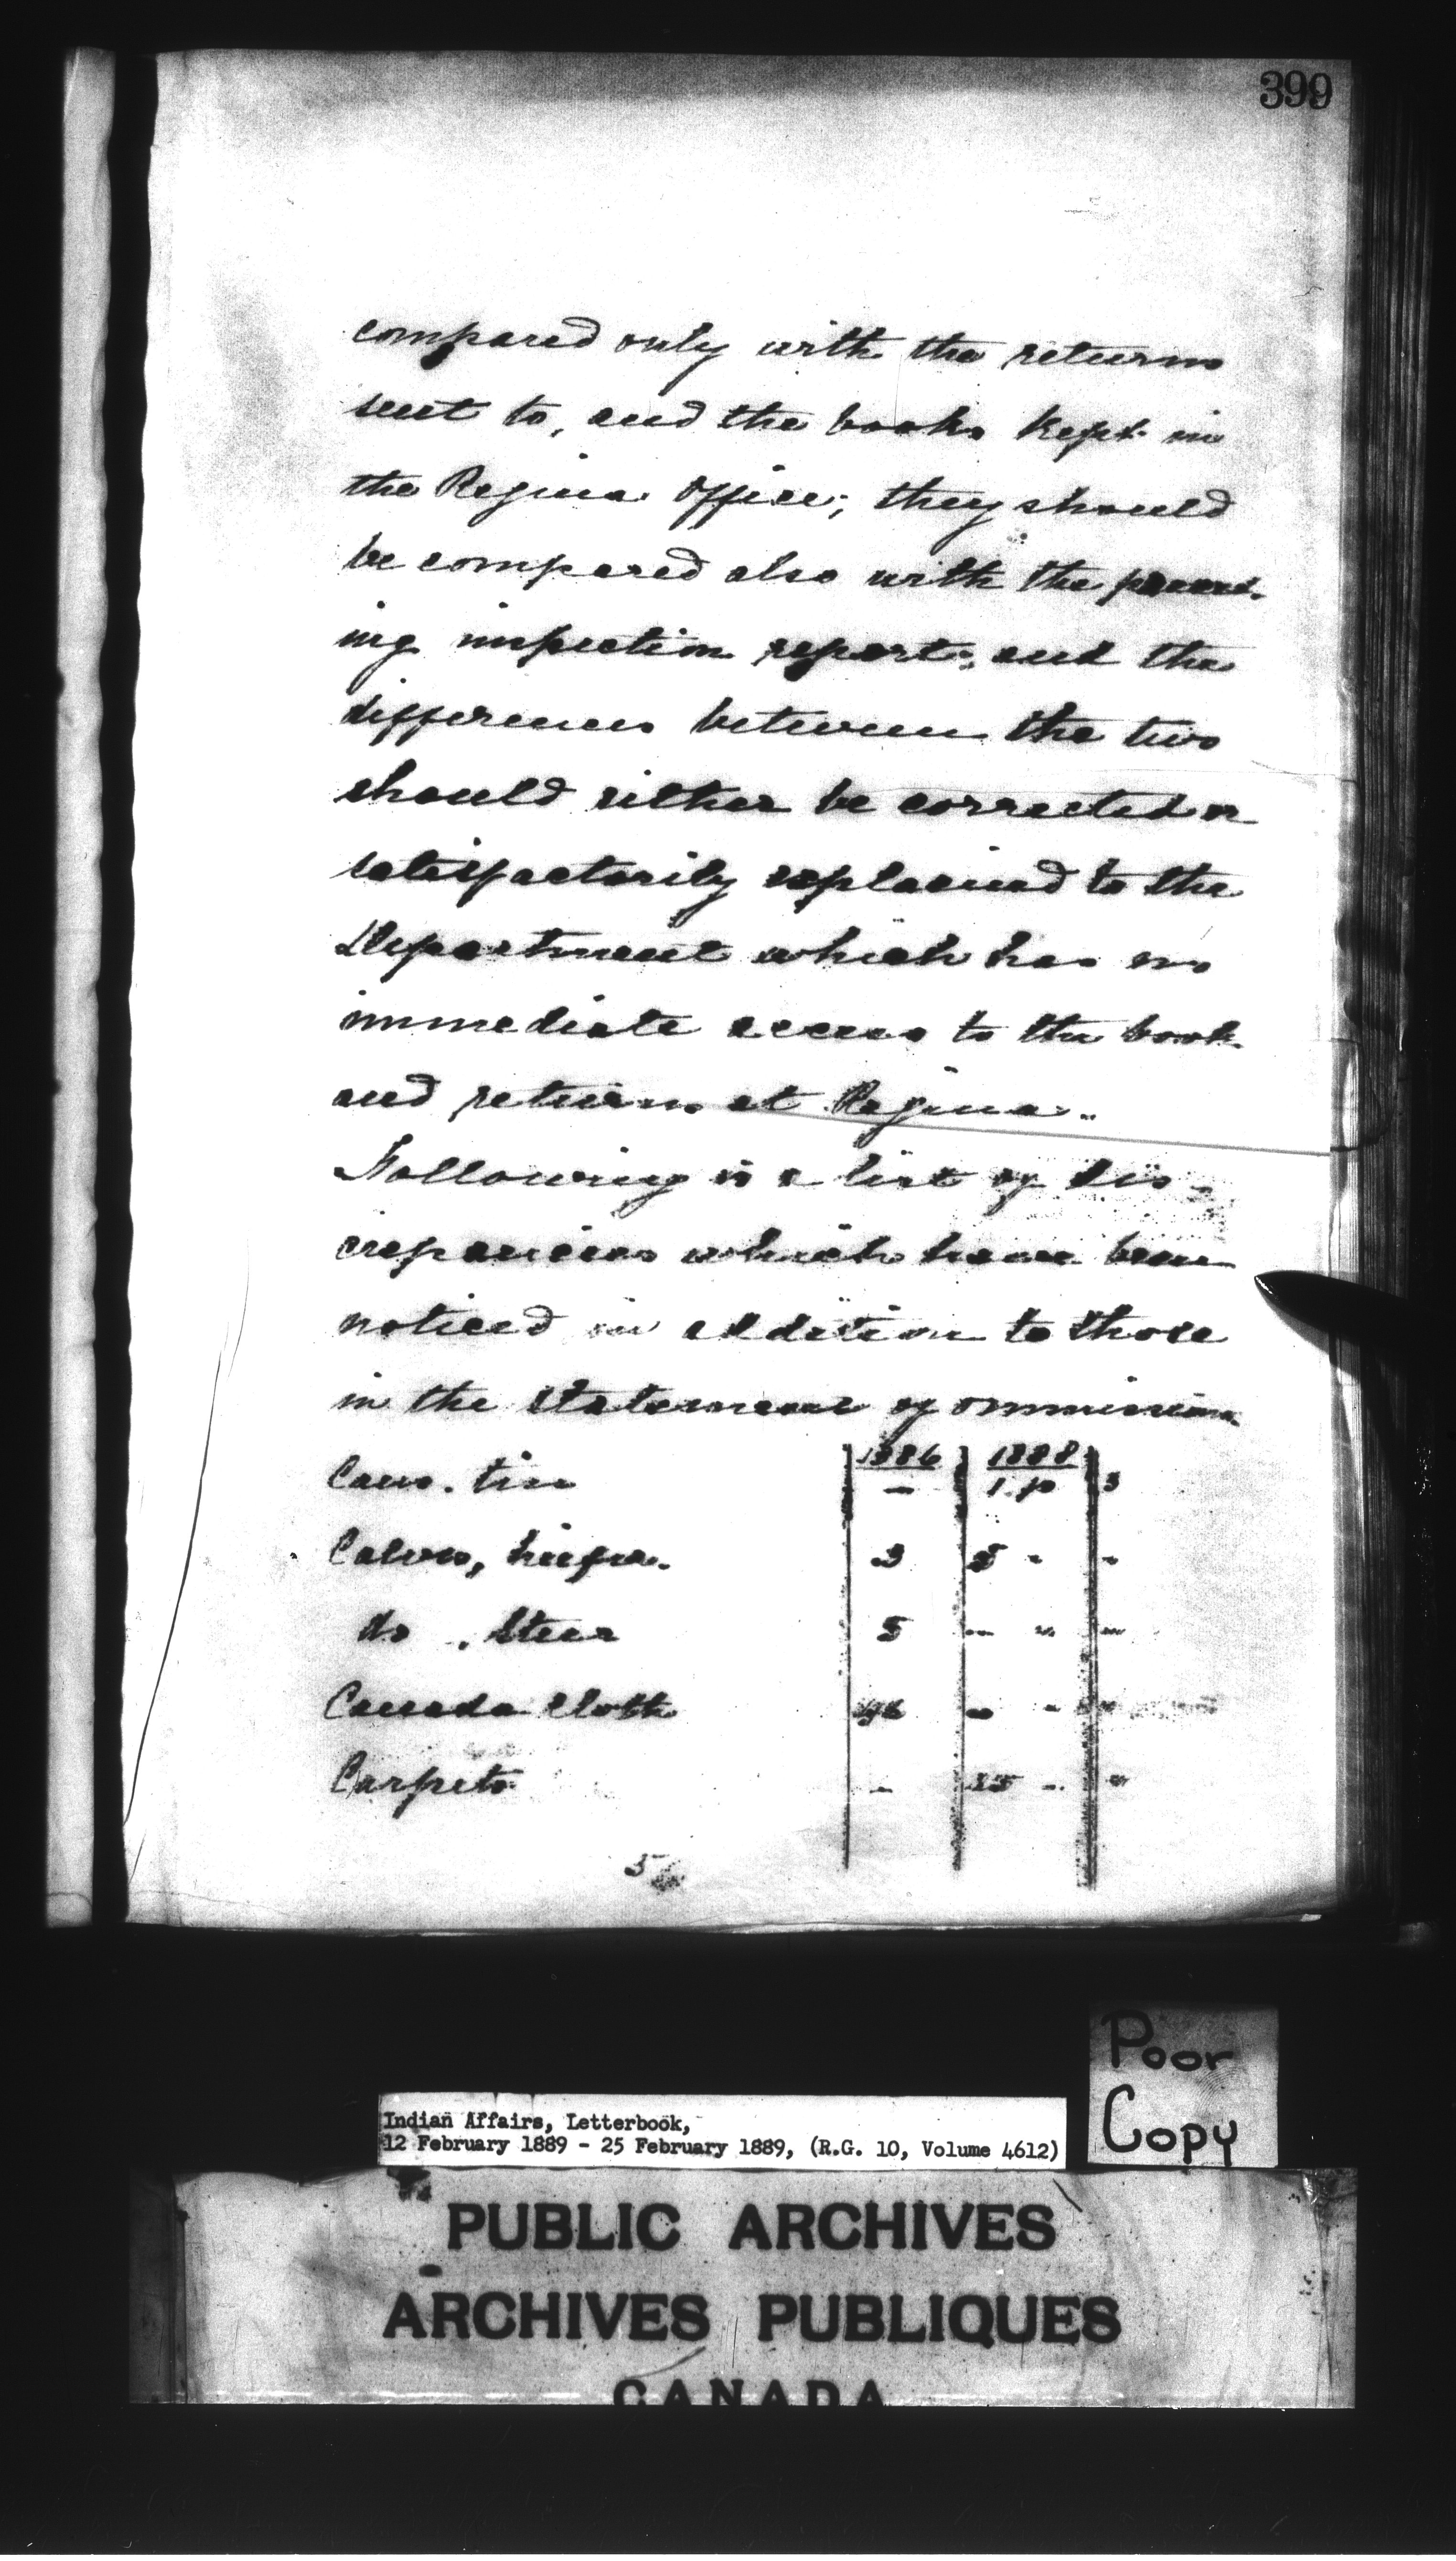 399
compared only with the returns
sent to, and the books kept in
the Regina Office; they should
be compared also with the preced-
ing inspection report; and the
differences between the two
should either be corrected or
satisfactorily explained to the
Department which has no
immediate access to the book
and returns at Regina.
Following is a list of dis-
crepancies which have been
noticed in addition to those
in the statement of ommissions
1886 1888
Cans. tin - 1 3
Calves, heifer. 3 5 - -
do . Steer 5 - " -
Canada Cloth - -
Carpets - 15 - "
5
Poor
Copy
Indian Affairs, Letterbook,
12 February 1889 - 25 February 1889, (R.G. 10, Volume 4612)
PUBLIC ARCHIVES
ARCHIVES PUBLIQUES
CANADA